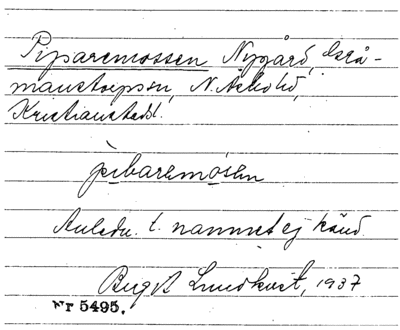 Piparemossen Nygård, Esrå-
manstorpsn, N. Åsbo hd,
Kristianstads l.
pibaremósen
Anledn. t. namnet ej känd.
Birgit Lundkvist, 1937
Nr 5495.